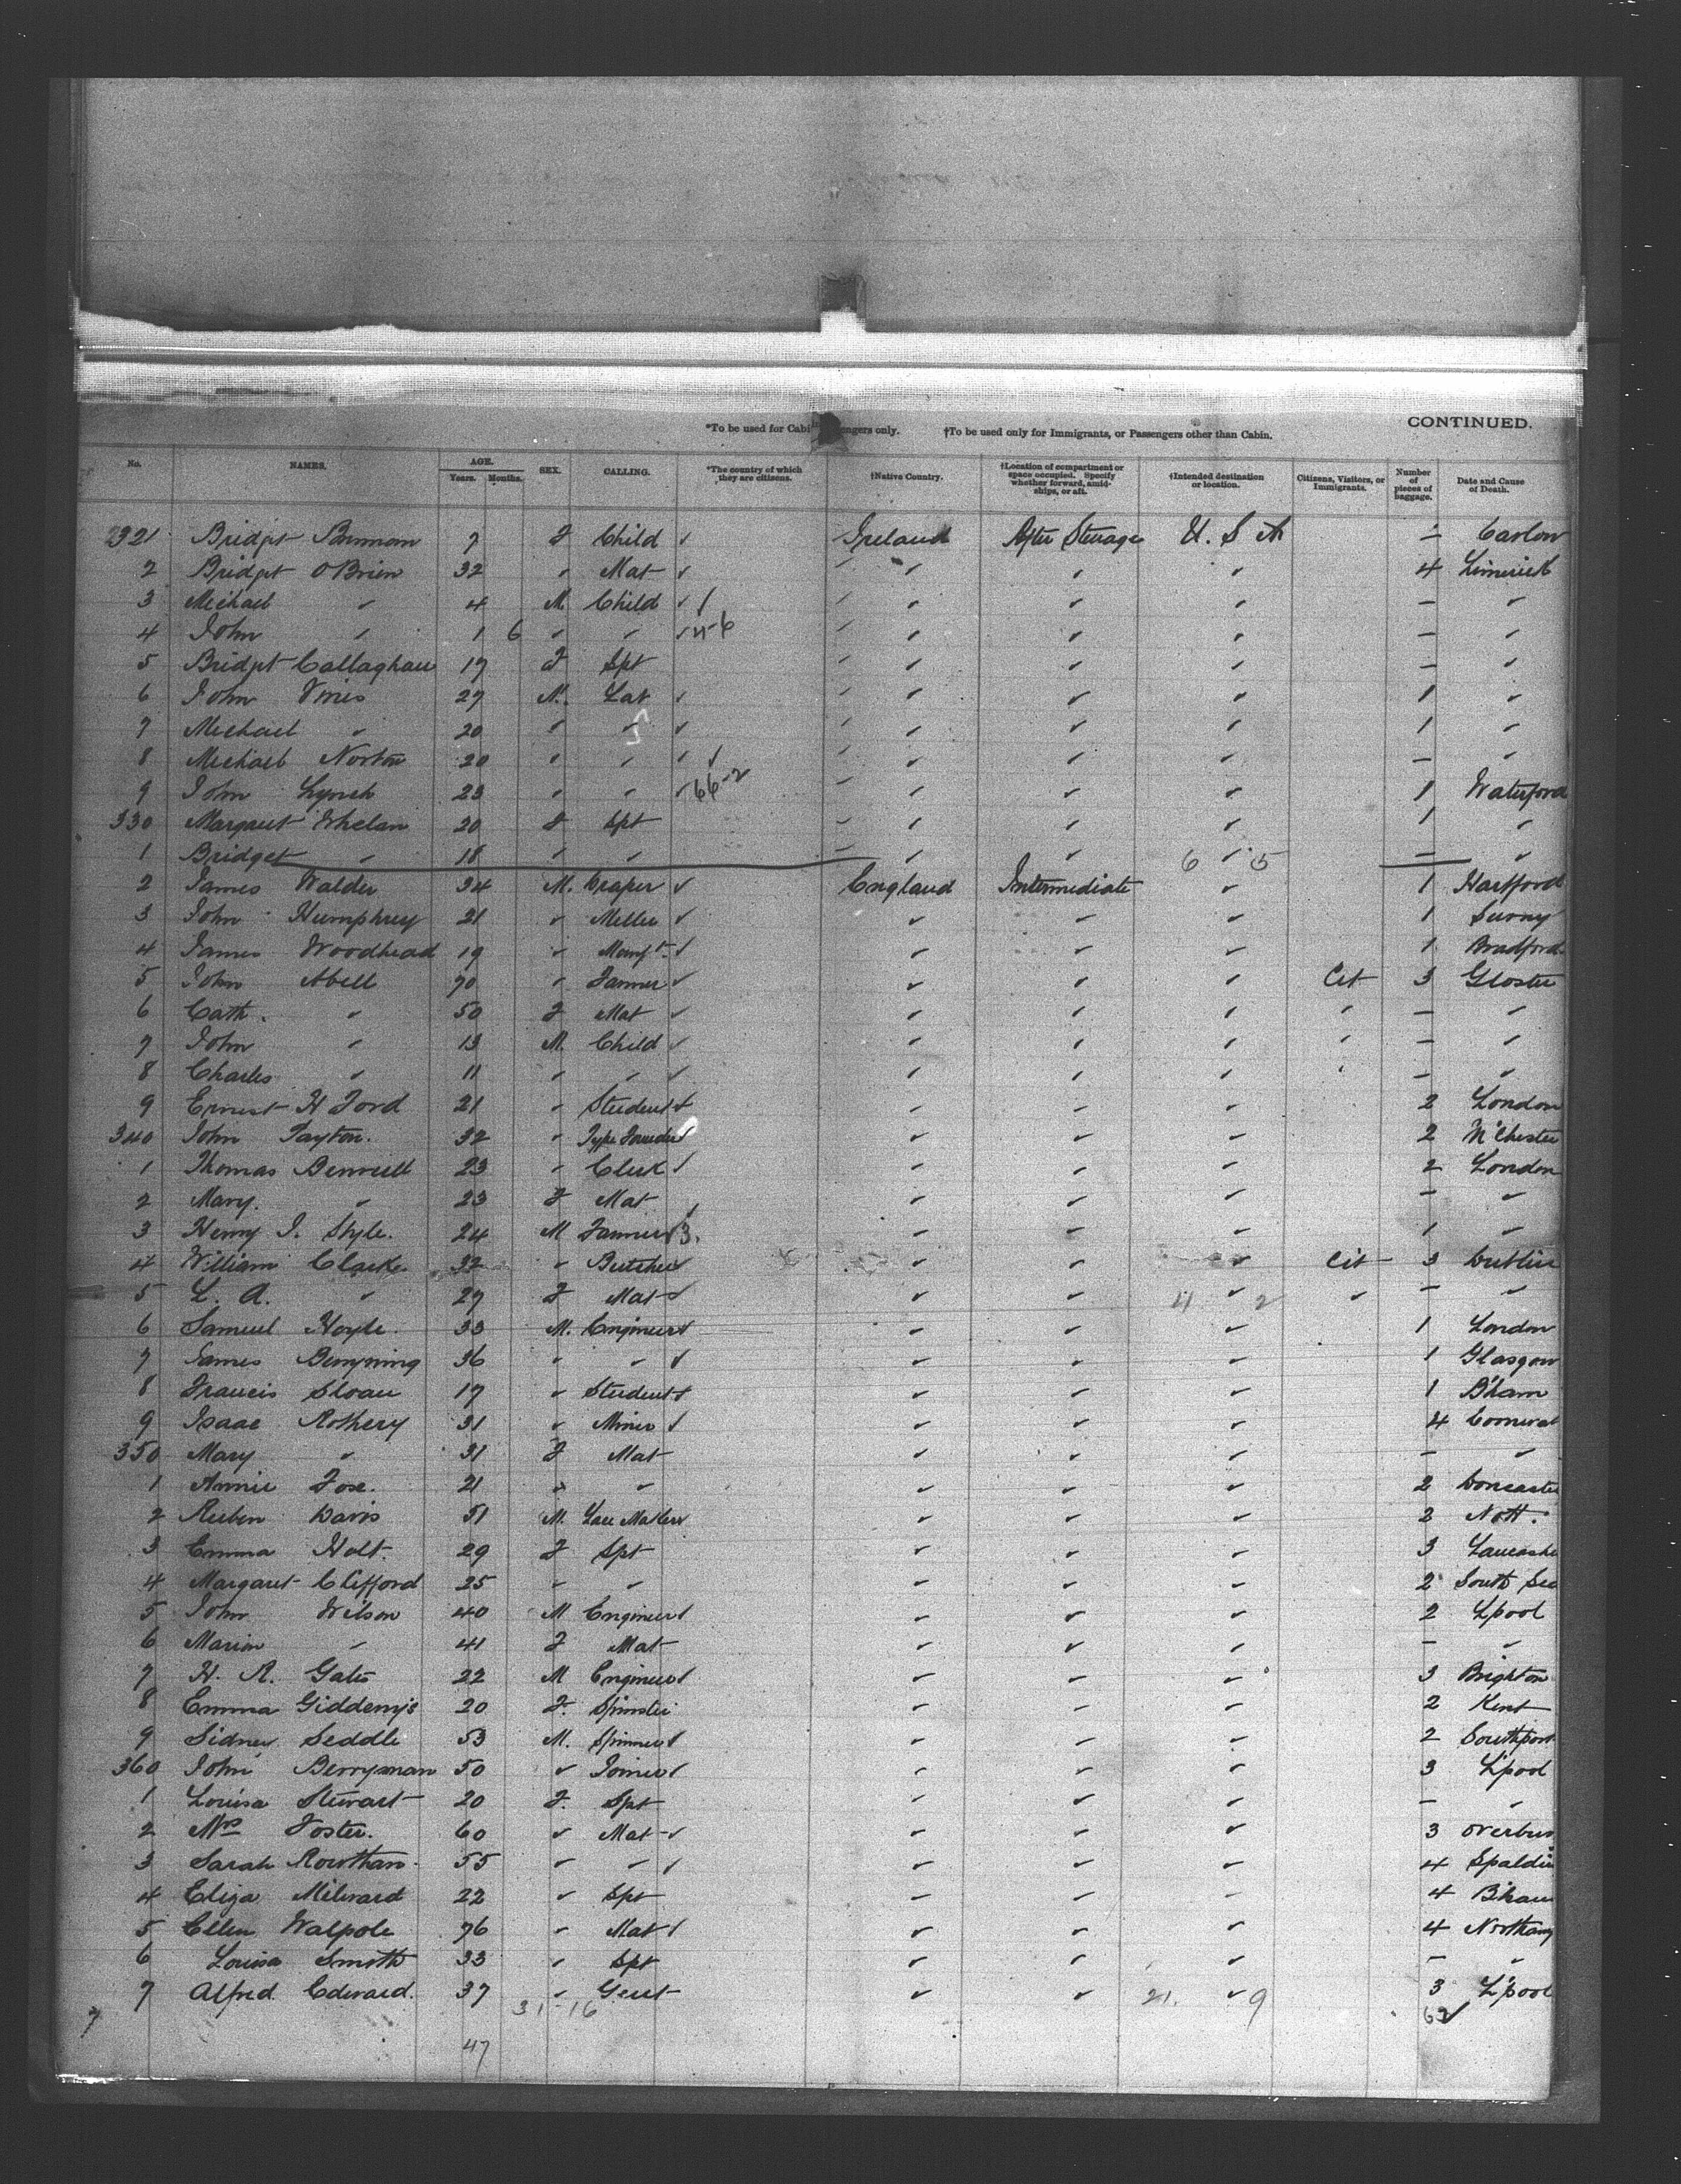 CONTINUED.
*To be used for Cabin Passengers only. †To be used only for Immigrants, or Passengers other than Cabin.
No. NAMES. AGE. Years. Months. SEX. CALLING. *The country of which they are citizens. †Native Country. †Location of compartment or space occupied. Specify whether forward, amidships, or aft. †Intended destination or location. Citizens, Visitors, or Immigrants. Number of pieces of baggage. Date and Cause of Death.
321 Bridget 7 F Child ✓ Ireland After Steerage U. S A – Carlow
2 Bridget O'Brien 32 " Mat ✓ " " " 4 Limerick
3 Michael " 4 M Child ✓ / " " " – "
4 John " 1 6 " " ✓ 4-6 " " " – "
5 Bridget Callaghan 17 F Spt " " " – "
6 John 27 M. Lab ✓ " " " 1 "
7 Michael " 20 " " ✓ " " " 1 "
8 Michael Norton 20 " " ✓ ✓ " " " – "
9 John Lynch 23 " " ✓ 66-2 " " " 1 Waterford
330 Margaret Whelan 20 F Spt " " " 1 "
1 Bridget " 18 " " " " 6 " 5 – "
2 James Walder 34 M. Draper ✓ England Intermediate " 1 Hartford
3 John Humphrey 21 " Miller ✓ " " " 1 Surrey
4 James Woodhead 19 " ✓ " " " 1 Bradford
5 John Abell 70 " Farmer ✓ " " " Cit 3 Gloster
6 Cath. " 50 F Mat ✓ " " " " – "
7 John " 13 M. Child ✓ " " " " – "
8 Charles " 11 " " ✓ " " " " – "
9 Ernest H Ford 21 " Student ✓ " " " 2 London
340 John Payton. 32 " Type Founder ✓ " " " 2 M'chester
1 Thomas 23 " Clerk ✓ " " " 2 London
2 Mary. " 23 F Mat " " " – "
3 Henry J. Style. 24 M Farmer ✓ 3. " " " 1 "
4 William Clarke 32 " Butcher ✓ " " " Cit 3 Dublin
5 L. A. " 27 F Mat ✓ " " 4 " 2 " – "
6 Samuel Hoyle. 33 M. Engineer ✓ " " " 1 London
7 James 36 " " ✓ " " " 1 Glasgow
8 Francis Sloan 17 " Student ✓ " " " 1 B'ham
9 Isaac Rothery 31 " Miner ✓ " " " 4 Cornwal
350 Mary " 31 F Mat " " " – "
1 Annie Fox. 21 " " " " " 2 Doncaster
2 Reuben Davis 51 M. Lace Maker ✓ " " " 2 Nott.
3 Emma Holt. 29 F Spt " " " 3 Lancashe
4 Margaret Clifford 25 " " " " " 2 South Sea
5 John Wilson 40 M Engineer ✓ " " " 2 Lpool
6 Marion " 41 F Mat " " " – "
7 H. R. Gates 22 M Engineer ✓ " " " 3 Brighton
8 Emma Giddenys 20 F. Spinster " " " 2 Kent
9 Sidney Seddle 53 M. Spinner ✓ " " " 2 Southport
360 John Berryman 50 " Joiner ✓ " " " 3 L'pool
1 Louisa Stewart 20 F. Spt " " " – "
2 Mrs Foster. 60 " Mat ✓ " " " 3
3 Sarah Rowthan. 55 " " ✓ " " " 4 Spaldin
4 Eliza Milward 22 " Spt " " " 4 B'ham
5 Ellen Walpole 76 " Mat ✓ " " " 4
6 Louisa Smith 33 " Spt " " " – "
7 Alfred Edward. 37 " Gent " " 21. " 9 3 L'pool
7 31-16 62✓
47